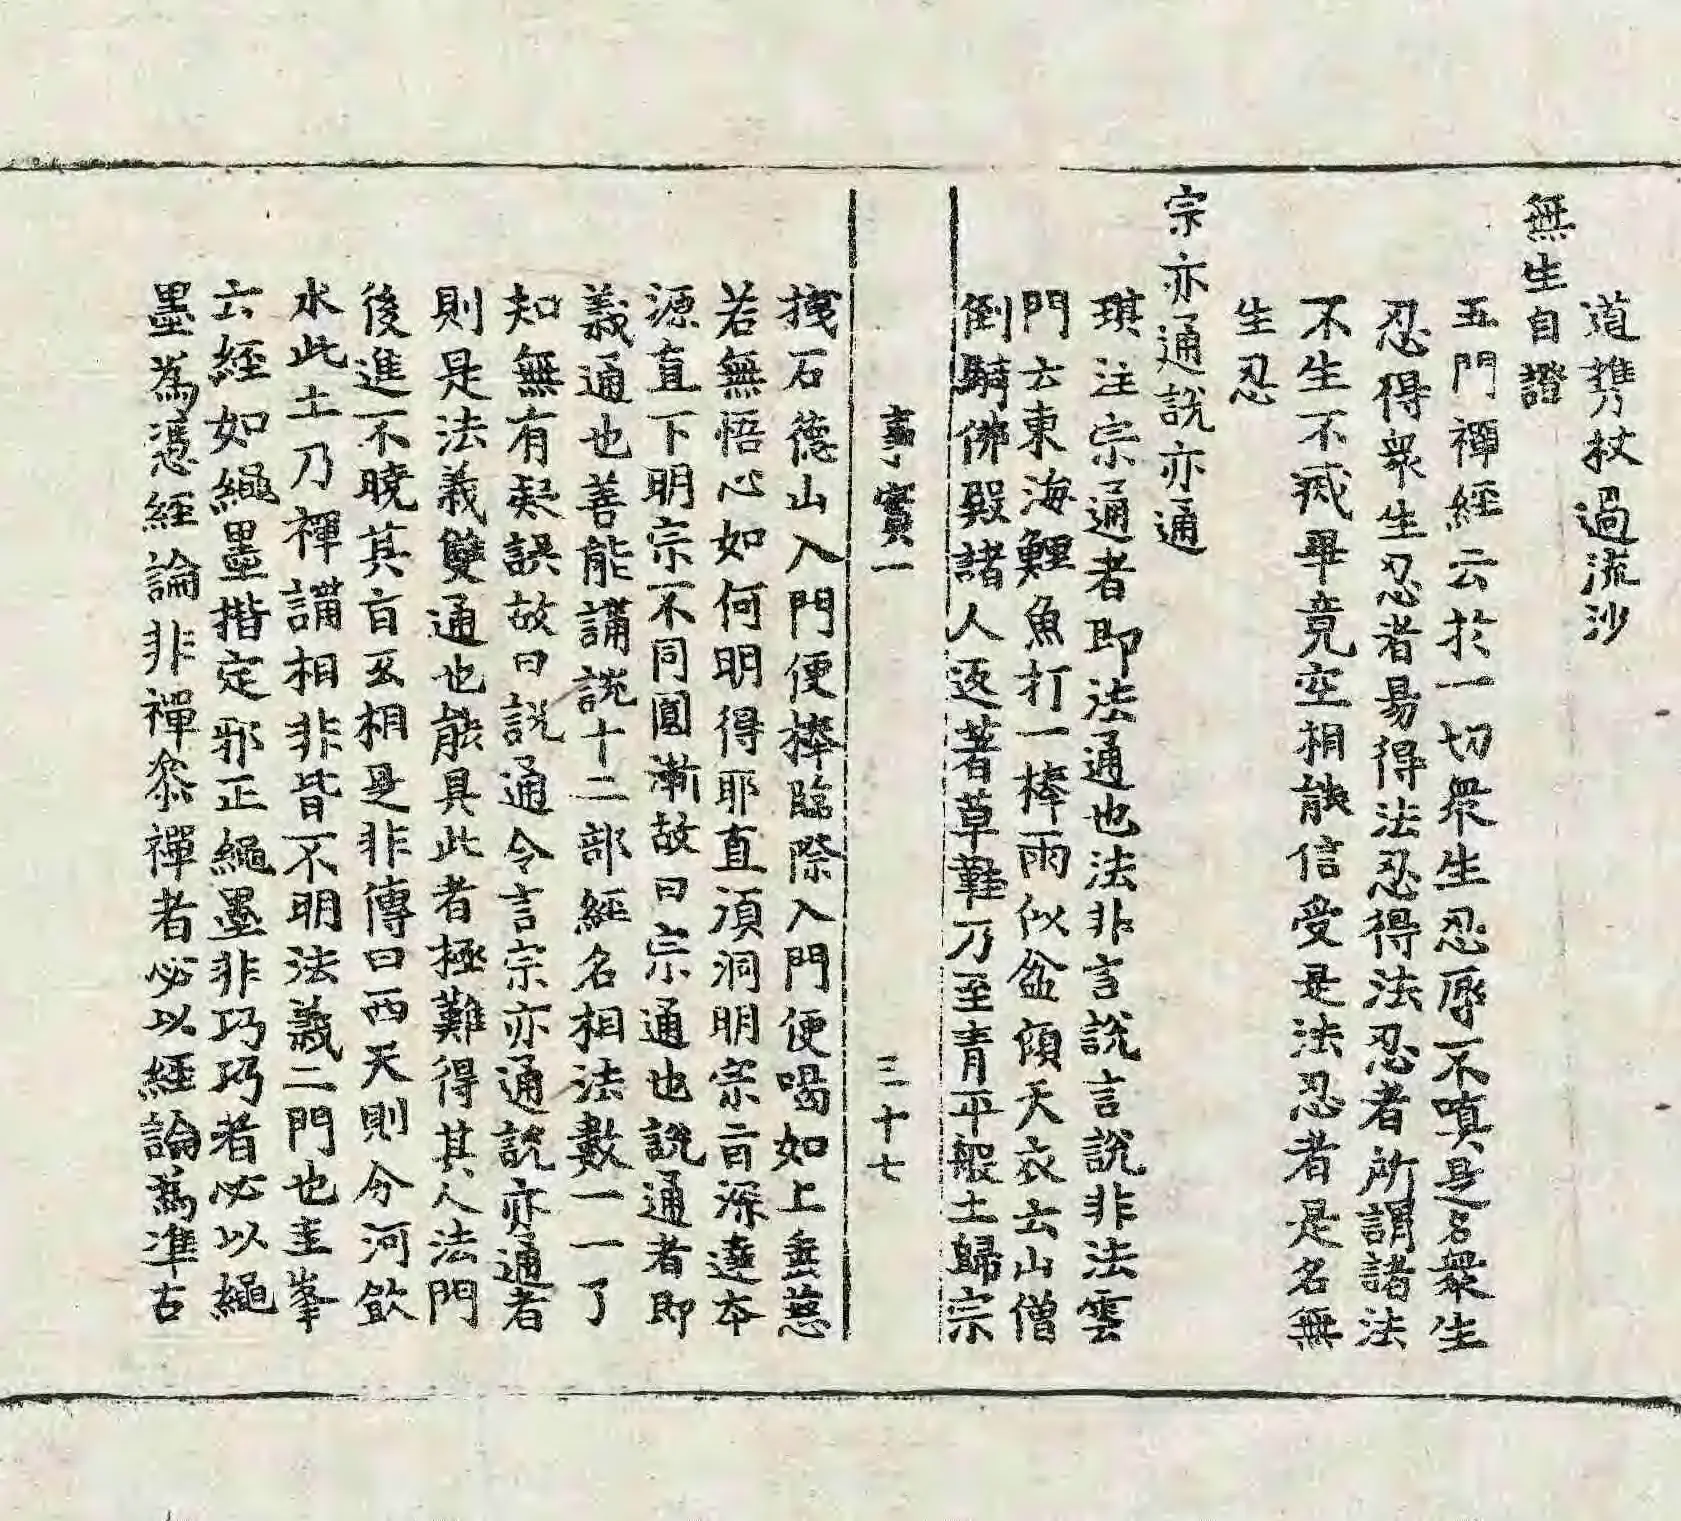 道携杖過流沙
無生自證
五門禪經云於一切衆生忍辱不嗔是名衆生
忍得衆生忍者易得法忍得法忍者所謂諸法
不生不滅畢竟空相能信受是法忍者是名無
生忍
宗亦通說亦通
琪注宗通者即法通也法非言說言說非法雲
門云東海鯉魚打一棒雨似盆傾天衣云山僧
倒騎佛殿諸人返著草鞋乃至青平般土歸宗
事實一 三十七
拽石德山入門便棒臨際入門便喝如上垂慈
若無悟心如何明得耶直須洞明宗旨深達本
源直下明宗不同圓漸故曰宗通也說通者即
義通也善能講談十二部經名相法數一一了
知無有疑誤故曰說通今言宗亦通說亦通者
則是法義雙通也能具此者極難得其人法門
後進不曉其旨互相是非傳曰西天則今河飲
水此土乃禪講相非皆不明法義二門也圭峯
云經如繩墨揩定邪正繩墨非巧巧者必以繩
墨為憑經論非禪叅禪者必以經論為准古